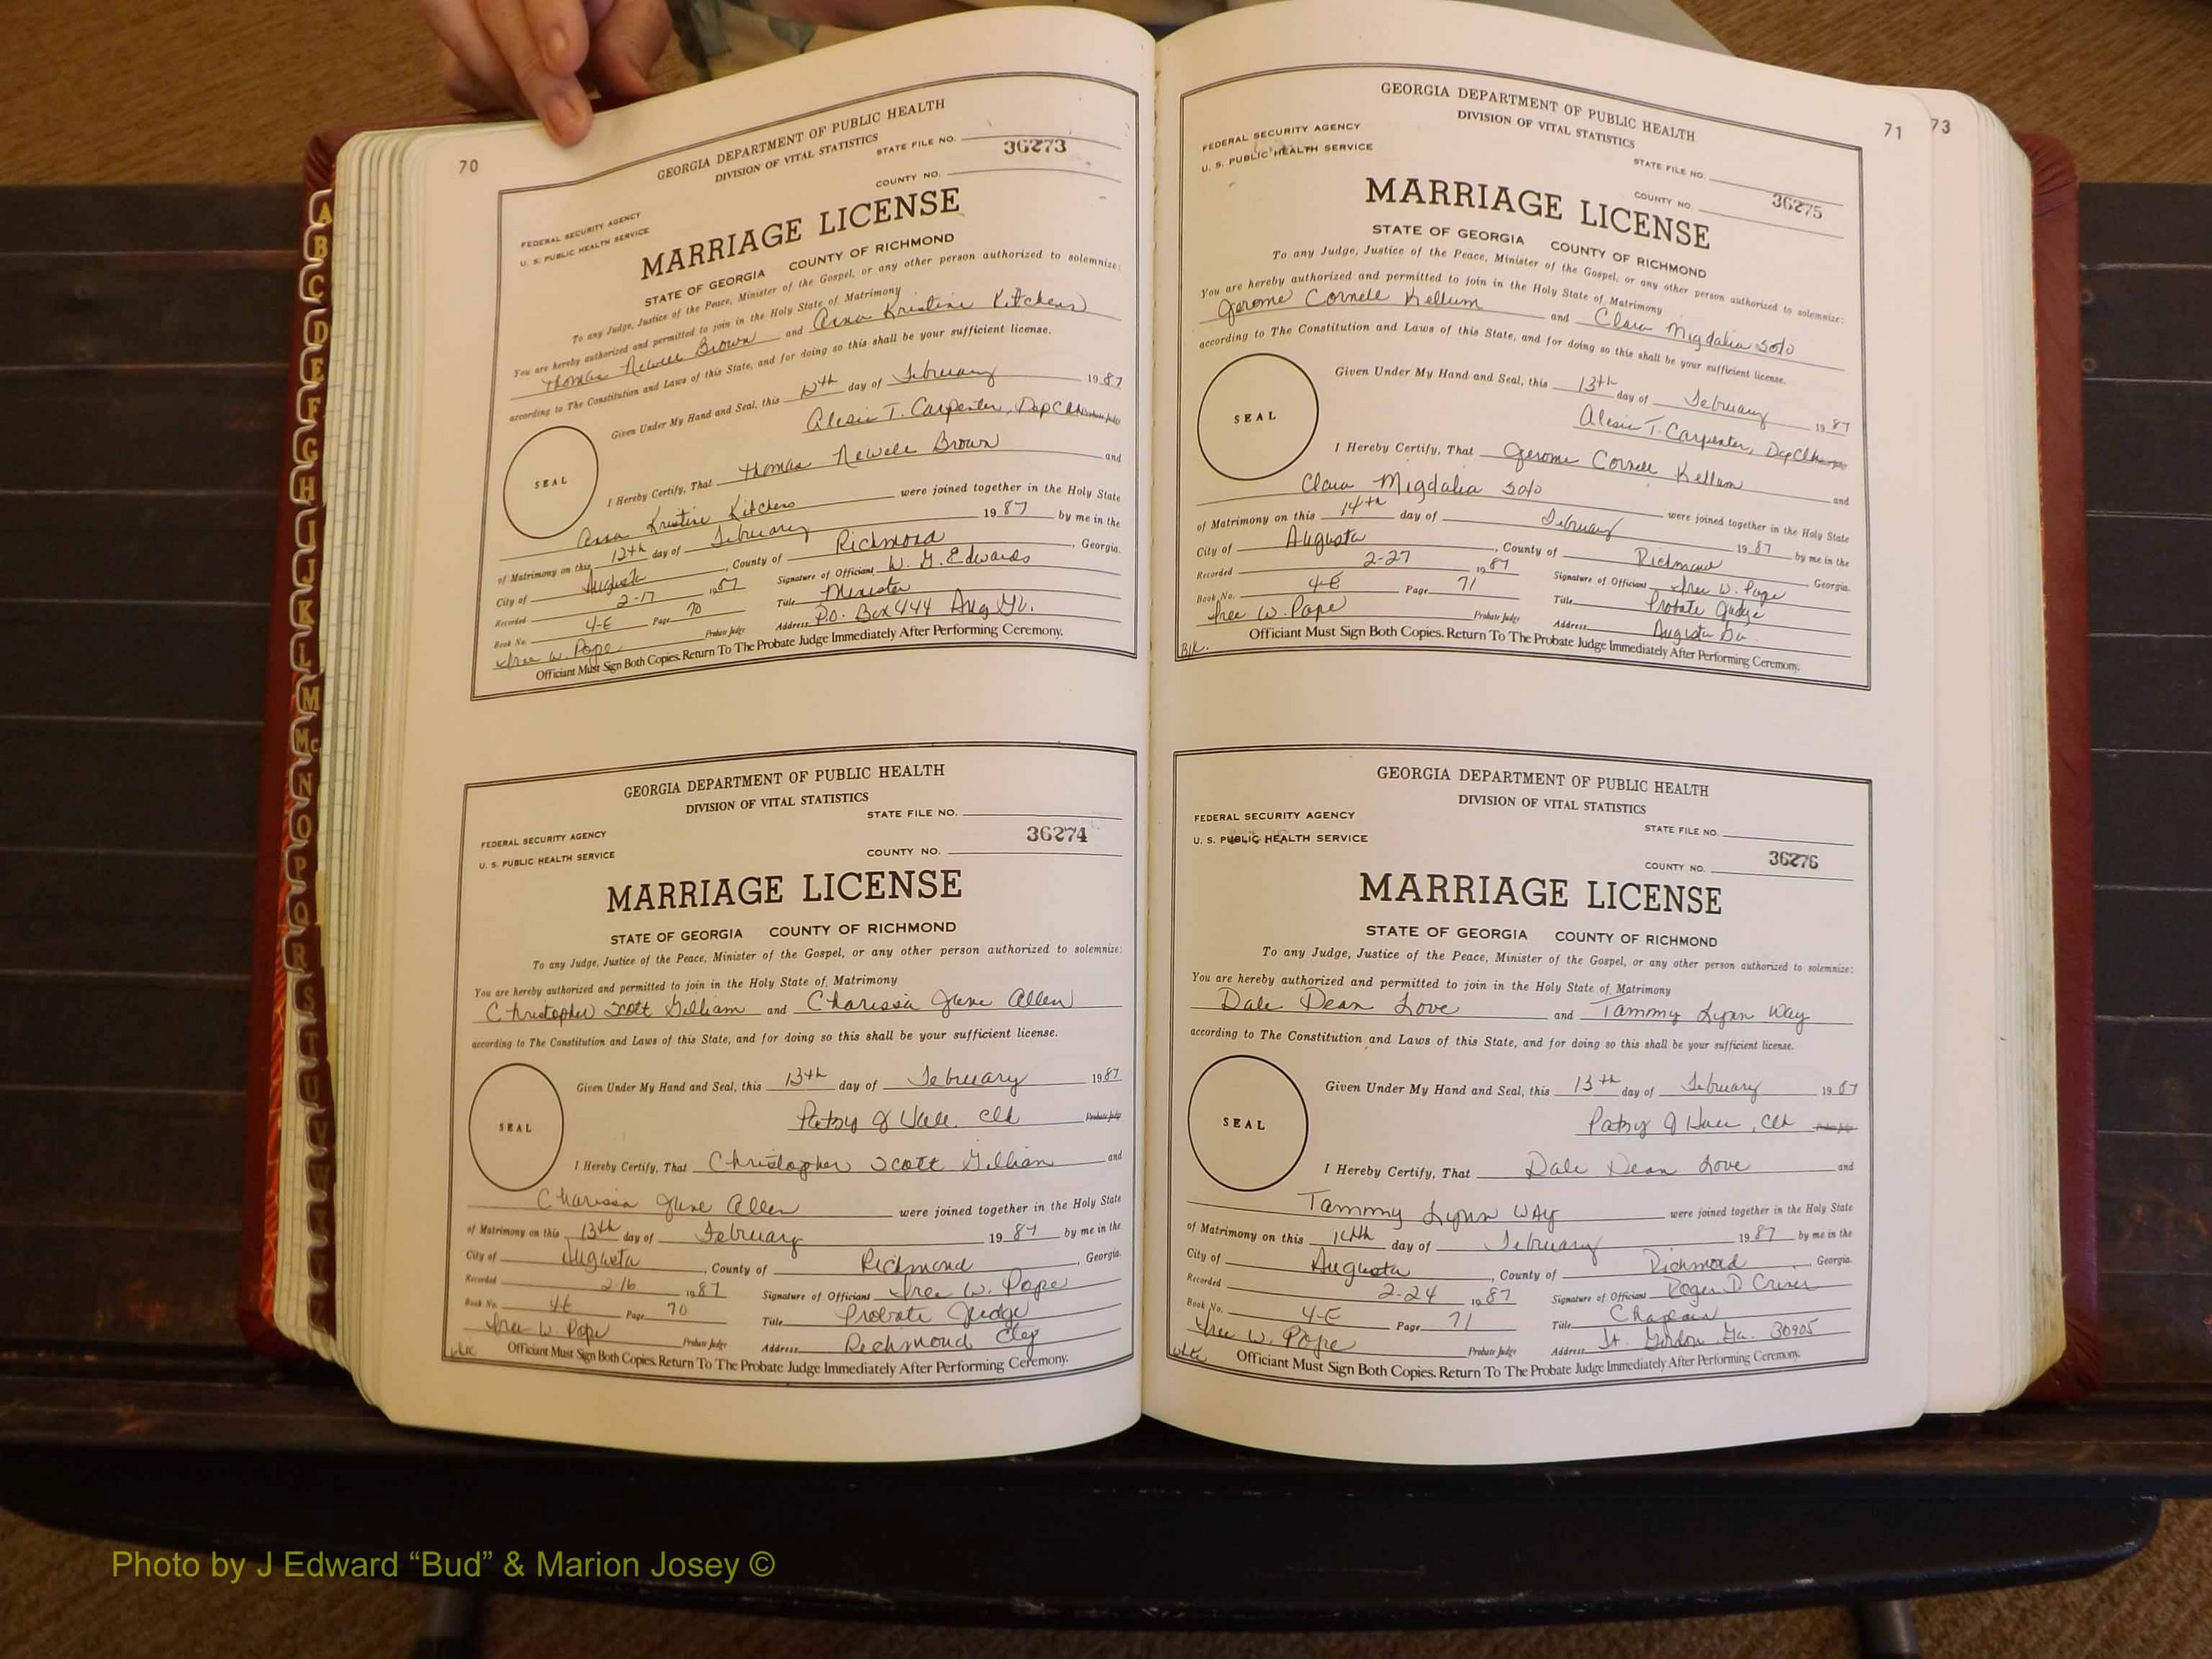 70
GEORGIA DEPARTMENT OF PUBLIC HEALTH
DIVISION OF VITAL STATISTICS
STATE FILE NO.
36273
COUNTY NO.
FEDERAL SECURITY AGENCY
U. S. PUBLIC HEALTH SERVICE
MARRIAGE LICENSE
STATE OF GEORGIA COUNTY OF RICHMOND
To any Judge, Justice of the Peace, Minister of the Gospel, or any other person authorized to solemnize:
You are hereby authorized and permitted to join in the Holy State of Matrimony
Thomas Newell Brown and Anna Kristine Kitchens
according to The Constitution and Laws of this State, and for doing so this shall be your sufficient license.
Given Under My Hand and Seal, this 12th day of February 1987
Alesia T. Carpenter, Dep Clk Probate Judge
SEAL
I Hereby Certify, That Thomas Newell Brown and
Anna Kristine Kitchens were joined together in the Holy State
of Matrimony on this 12th day of February 1987 by me in the
City of Augusta, County of Richmond, Georgia.
Recorded 2-17 1987 Signature of Officiant W. G. Edwards
Book No. 4-E Page 70 Title Minister
W. Pope Probate Judge Address P.O. Box 444 Aug Ga.
Officiant Must Sign Both Copies. Return To The Probate Judge Immediately After Performing Ceremony.
GEORGIA DEPARTMENT OF PUBLIC HEALTH
DIVISION OF VITAL STATISTICS
STATE FILE NO.
36274
FEDERAL SECURITY AGENCY
U. S. PUBLIC HEALTH SERVICE
COUNTY NO.
MARRIAGE LICENSE
STATE OF GEORGIA COUNTY OF RICHMOND
To any Judge, Justice of the Peace, Minister of the Gospel, or any other person authorized to solemnize:
You are hereby authorized and permitted to join in the Holy State of Matrimony
Christopher Scott Gilliam and Charissa June Allen
according to The Constitution and Laws of this State, and for doing so this shall be your sufficient license.
Given Under My Hand and Seal, this 13th day of February 1987
Patsy J Hall, Clk Probate Judge
SEAL
I Hereby Certify, That Christopher Scott Gilliam and
Charissa June Allen were joined together in the Holy State
of Matrimony on this 13th day of February 1987 by me in the
City of Augusta, County of Richmond, Georgia.
Recorded 2-16 1987 Signature of Officiant W. Pope
Book No. 4E Page 70 Title Probate Judge
W. Pope Probate Judge Address Richmond
Officiant Must Sign Both Copies. Return To The Probate Judge Immediately After Performing Ceremony.
71 73
GEORGIA DEPARTMENT OF PUBLIC HEALTH
DIVISION OF VITAL STATISTICS
FEDERAL SECURITY AGENCY
U. S. PUBLIC HEALTH SERVICE
STATE FILE NO.
36275
COUNTY NO
MARRIAGE LICENSE
STATE OF GEORGIA COUNTY OF RICHMOND
To any Judge, Justice of the Peace, Minister of the Gospel, or any other person authorized to solemnize:
You are hereby authorized and permitted to join in the Holy State of Matrimony
Jerome Cornell Kellum and Clara Migdalia Soto
according to The Constitution and Laws of this State, and for doing so this shall be your sufficient license.
Given Under My Hand and Seal, this 13th day of February 1987
Alesia T. Carpenter, Dep Clk
SEAL
I Hereby Certify, That Jerome Cornell Kellum and
Clara Migdalia Soto were joined together in the Holy State
of Matrimony on this 14th day of February 1987 by me in the
City of Augusta, County of Richmond Georgia.
Recorded 2-27 1987 Signature of Officiant W. Pope
Book No. 4-E Page 71 Title Probate Judge
W. Pope Probate Judge Address Augusta Ga.
Officiant Must Sign Both Copies. Return To The Probate Judge Immediately After Performing Ceremony.
GEORGIA DEPARTMENT OF PUBLIC HEALTH
DIVISION OF VITAL STATISTICS
FEDERAL SECURITY AGENCY
U. S. PUBLIC HEALTH SERVICE
STATE FILE NO.
36276
COUNTY NO.
MARRIAGE LICENSE
STATE OF GEORGIA COUNTY OF RICHMOND
To any Judge, Justice of the Peace, Minister of the Gospel, or any other person authorized to solemnize:
You are hereby authorized and permitted to join in the Holy State of Matrimony
Dale Dean Love and Tammy Lynn Way
according to The Constitution and Laws of this State, and for doing so this shall be your sufficient license.
Given Under My Hand and Seal, this 13th day of February 1987
Patsy J Hall, Clk
SEAL
I Hereby Certify, That Dale Dean Love and
Tammy Lynn Way were joined together in the Holy State
of Matrimony on this 14th day of February 1987 by me in the
City of Augusta, County of Richmond, Georgia.
Recorded 2-24 1987 Signature of Officiant Roger D
Book No. 4-E Page 71 Title Chaplain
W. Pope Probate Judge Address Ft. Gordon Ga. 30905
Officiant Must Sign Both Copies. Return To The Probate Judge Immediately After Performing Ceremony.
A
B
C
D
E
F
G
H
I
J
K
L
M
Mc
N
O
P
Q
R
S
Photo by J Edward “Bud” & Marion Josey ©